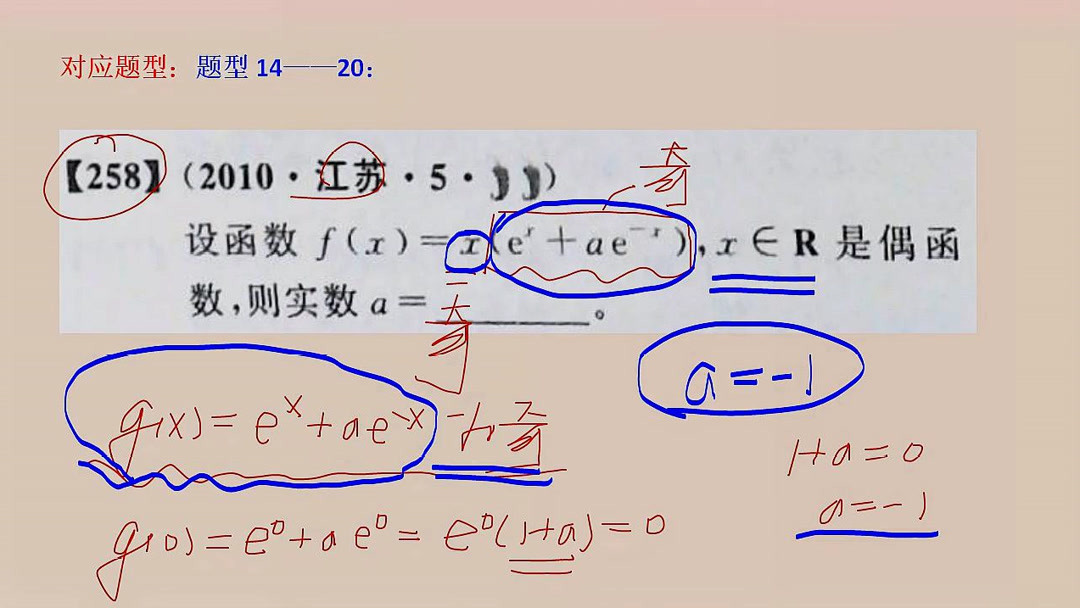 对应题型：题型 14——20：
【258】(2010·江苏·5·
设函数 f(x)=x(eˣ+ae⁻ˣ), x∈R 是偶函
数,则实数 a=________。
a=-1
g(x)=eˣ+ae⁻ˣ 一个奇
1+a=0
a=-1
g(0)=e⁰+ae⁰=e⁰(1+a)=0